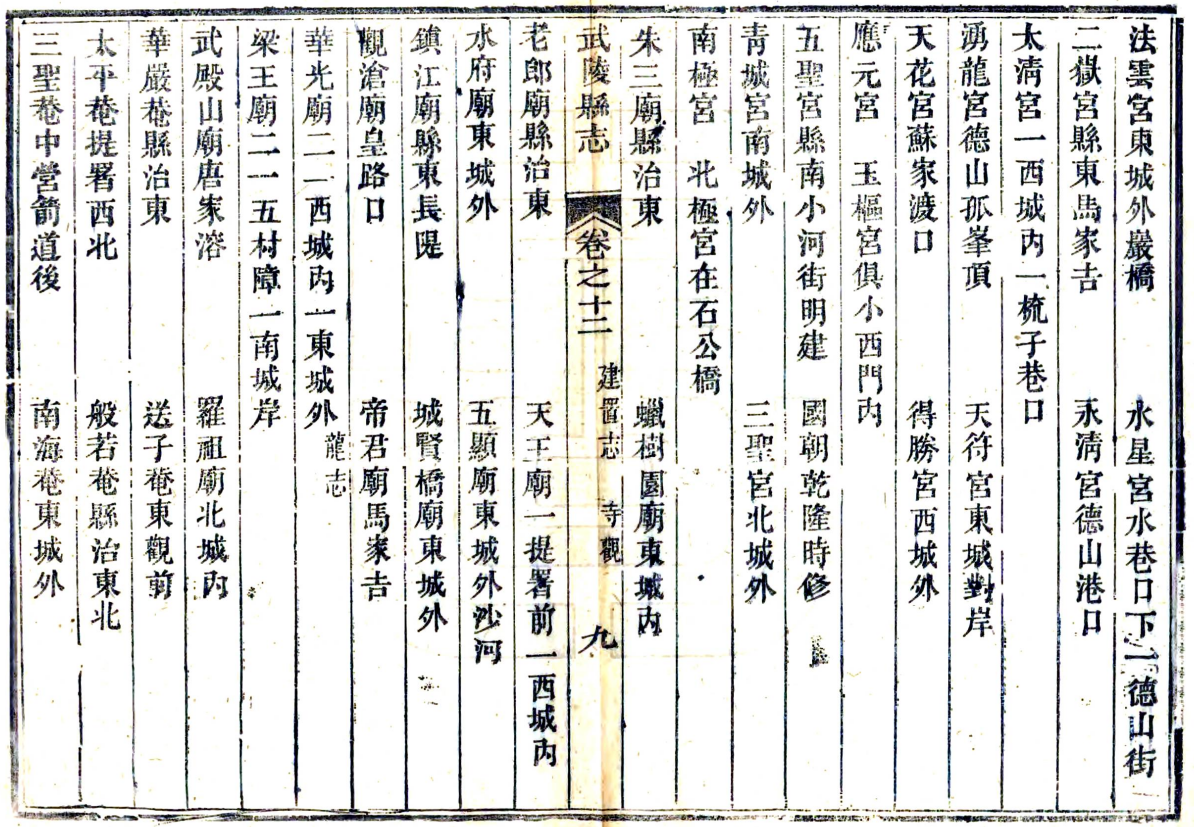 法雲宮東城外巖橋　水星宮水巷口下一德山街
二獄宮縣東馬家吉　永清宮德山港口
太淸宮一西城內一梳子巷口
湧龍宮德山孤峯頂　天符宮東城對岸
天花宮蘇家渡口　得勝宮西城外
應元宮　玉樞宮俱小西門內
五聖宮縣南小河街明建　國朝乾隆時修
靑城宮南城外　三聖宮北城外
南極宮　北極宮在石公橋
朱三廟縣治東　蠟樹園廟東城內
武陵縣志　卷之十二　建置志　寺觀　九
老郎廟縣治東　天王廟一提署前一西城內
水府廟東城外　五顯廟東城外沙河
鎮江廟縣東長隄　城賢橋廟東城外
觀滄廟皇路口　帝君廟馬家吉
華光廟二一西城內一東城外龍志
梁王廟二一五村障一南城岸
武殿山廟唐家溶　羅祖廟北城內
華嚴菴縣治東　送子菴東觀前
太平菴提署西北　般若菴縣治東北
三聖菴中營箭道後　南海菴東城外